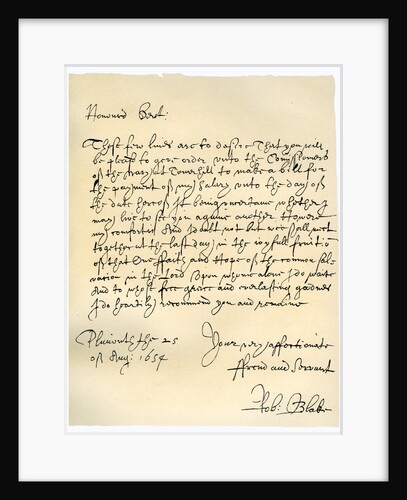 Honourd Sr:
These few lines are to desire That you will
be pleasd to give order unto the Comissioners
of the Navy at Towerhill to make a bill for
the payment of my salary unto the day of
the date hereof It being uncertaine whether I
may live to see you againe another
my comfort is And I doubt not but wee shall meet
together at the last day in the ioyfull fruitiō
of that One ffaith and Hope of the common
in the Lord Upon whome alone I do waite
And to whose free grace and everlasting goodnes
I do heartily recommend you and remaine
Plimouth the 25
of Aug: 1654
Your very affectionate
ffrend and Servant
Rob: Blake